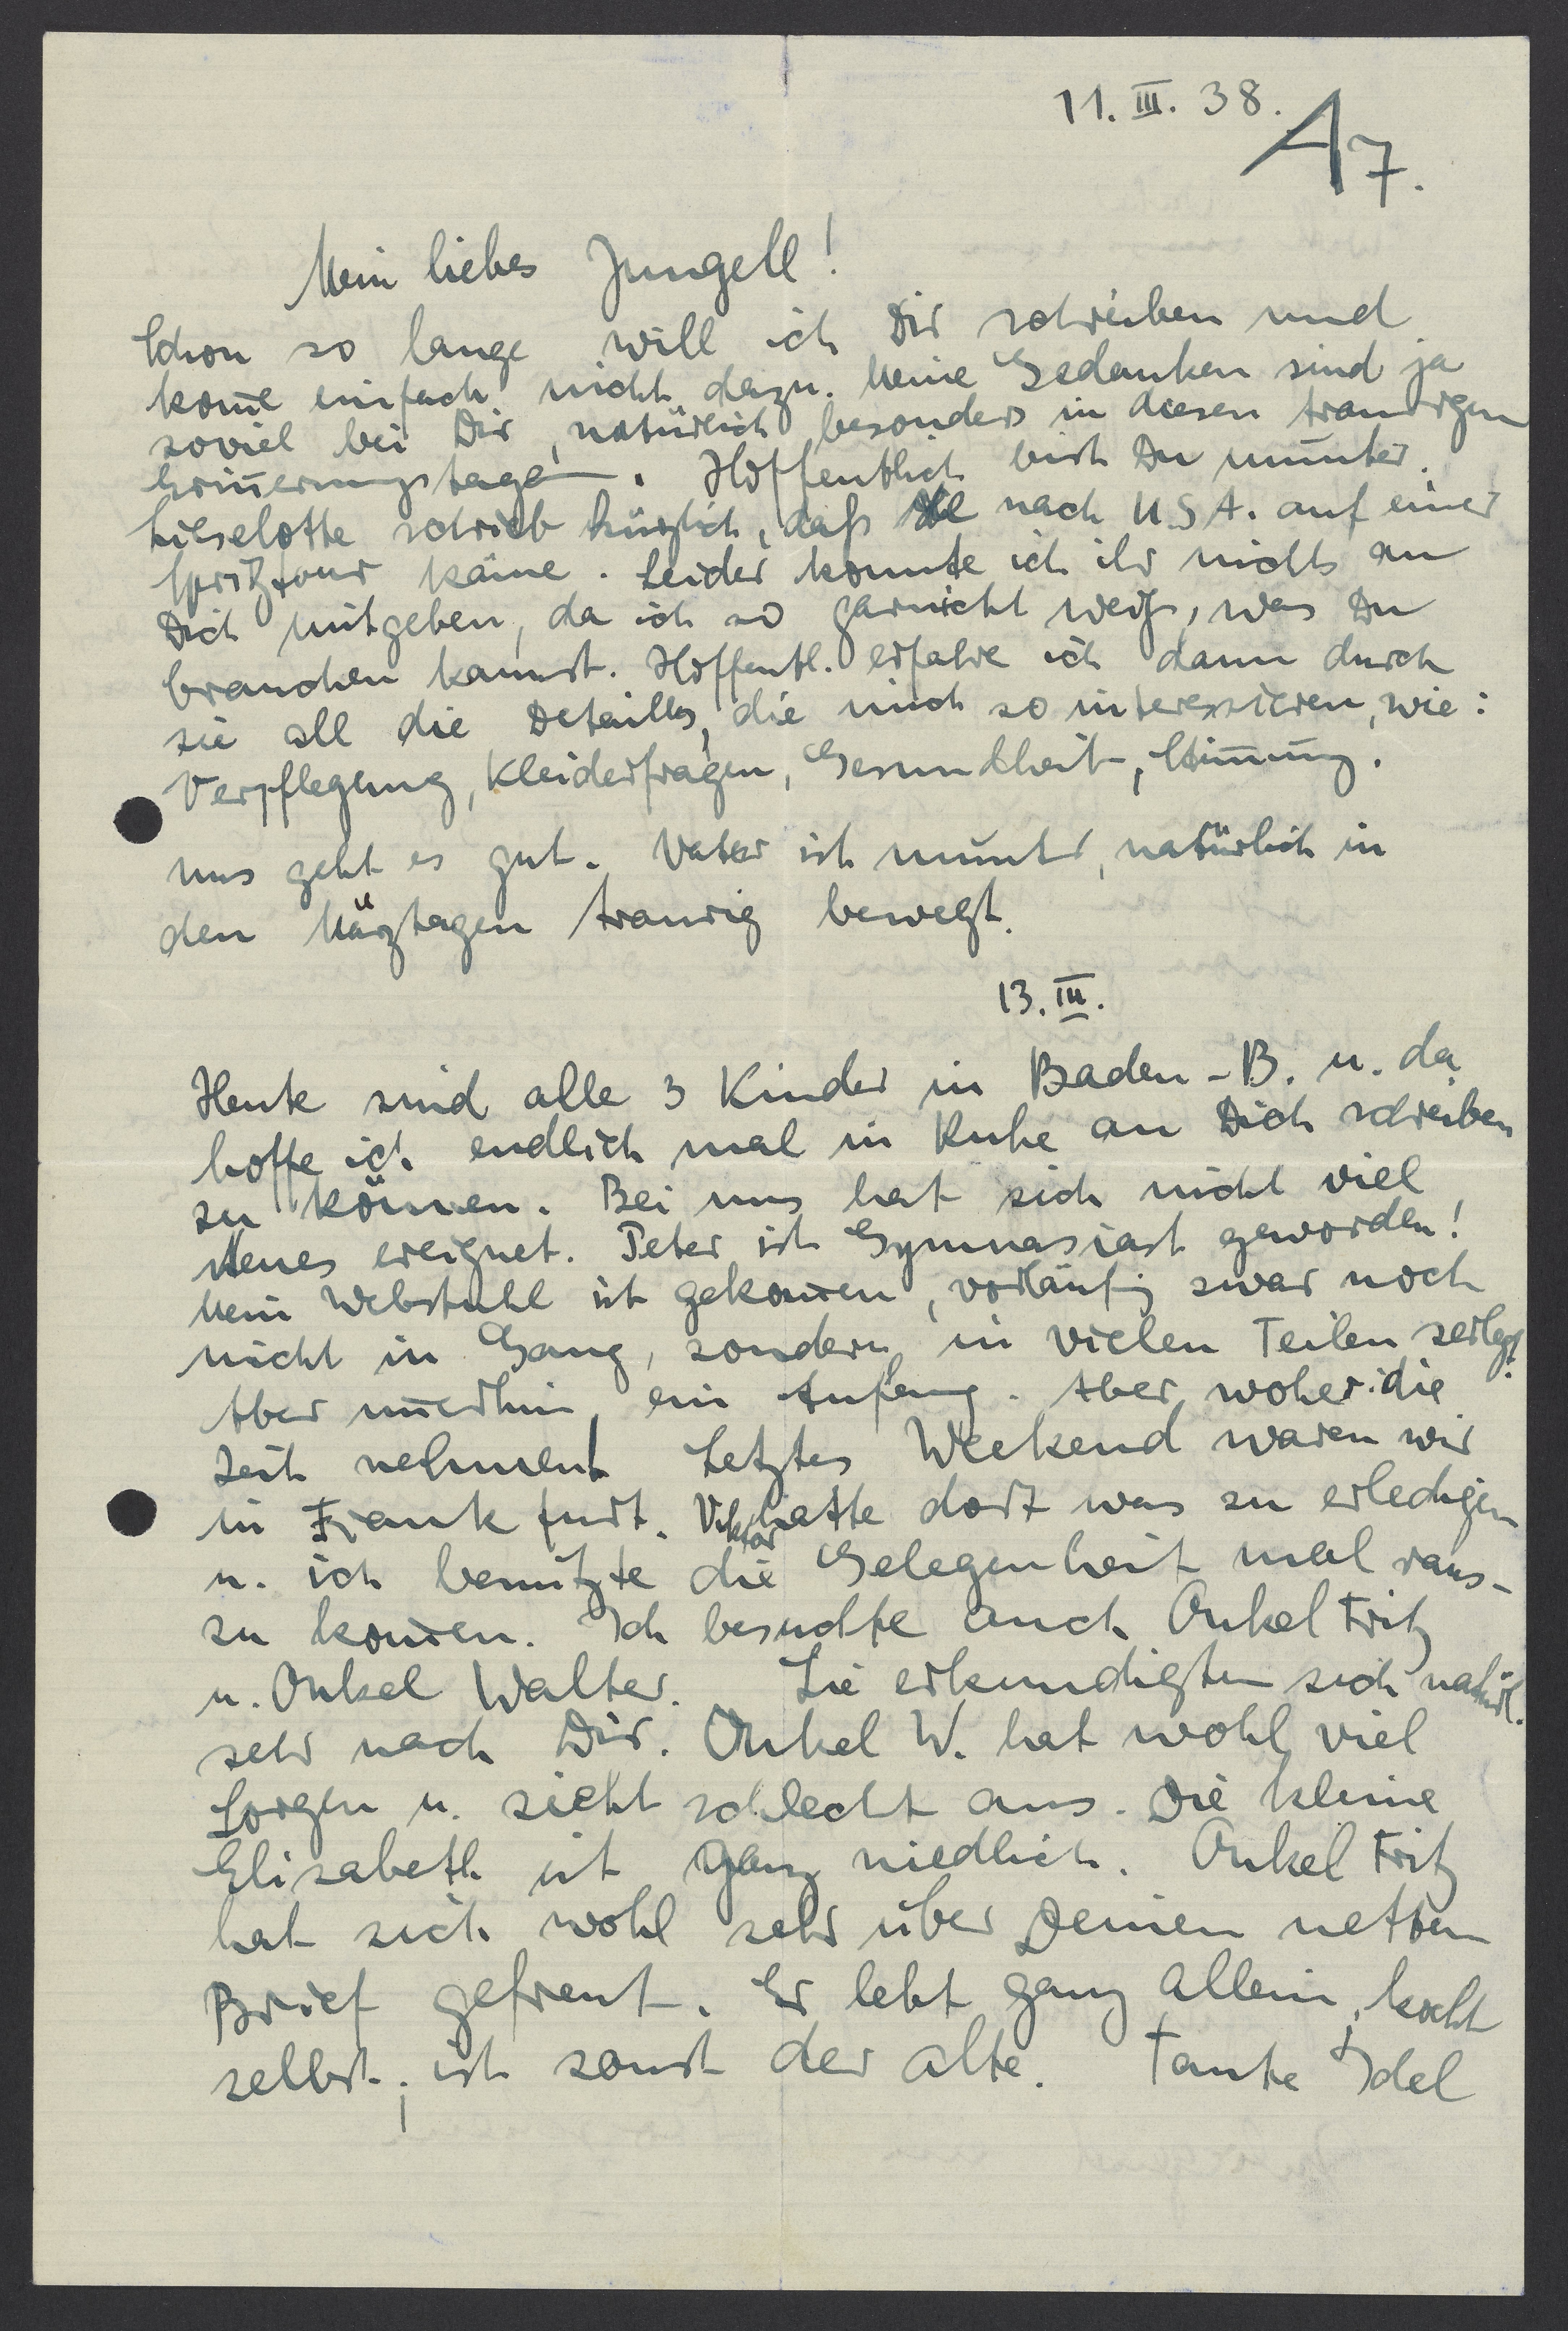 11. III. 38.
A7.
Mein liebes Jungele!
Schon so lange will ich Dir schreiben und
kom̅e einfach nicht dazu. Meine Gedanken sind ja
soviel bei Dir, natürlich besonders in diesen traurigen
Erin̅erungstagen. Hoffentlich bist Du munter.
Lieselotte schrieb kürzlich, daß sie nach U.S.A. auf einer
Spritztour käme. Leider konnte ich ihr nichts an
Dich mitgeben, da ich so garnicht weiß, was Du
brauchen kannst. Hoffentl. erfahre ich dann durch
sie all die Detailles, die mich so interessieren, wie:
Verpflegung, Kleiderfragen, Gesundheit, Stim̅ung.
uns geht es gut. Vater ist munter, natürlich in
den Märztagen traurig bewegt.
13. III.
Heute sind alle 3 Kinder in Baden-B. u. da
hoffe ich endlich mal in Ruhe an Dich schreiben
zu können. Bei uns hat sich nicht viel
Neues ereignet. Peter ist Gymnasiast geworden!
Mein Webstuhl ist gekom̅en, vorläufig zwar noch
nicht in Gang, sondern in vielen Teilen zerlegt.
Aber im̅erhin, ein Anfang. Aber woher die
Zeit nehmen! Letztes Weekend waren wir
in Frankfurt. Viktor hatte dort was zu erledigen
u. ich benützte die Gelegenheit mal raus-
zu kom̅en. Ich besuchte auch Onkel Fritz
u. Onkel Walter. Sie erkundigten sich natürl.
sehr nach Dir. Onkel W. hat wohl viel
Sorgen u. sieht schlecht aus. Die kleine
Elisabeth ist ganz niedlich. Onkel Fritz
hat sich wohl sehr über Deinen netten
Brief gefreut. Er lebt ganz allein, kocht
selbst; ist sonst der alte. Tante Idel